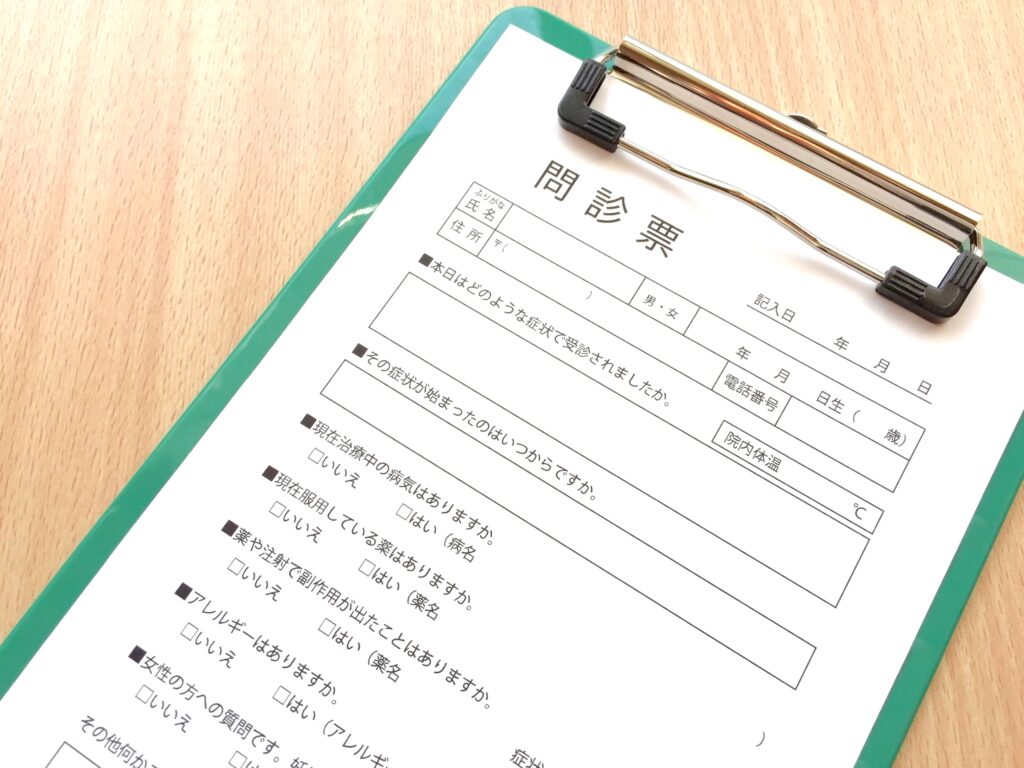 問診票
記入日 年 月 日
ふりがな
氏名 男・女 年 月 日生( 歳)
住所 〒( ) 電話番号
院内体温 ℃
■本日はどのような症状で受診されましたか。
■その症状が始まったのはいつからですか。
■現在治療中の病気はありますか。
□いいえ □はい(病名
■現在服用している薬はありますか。
□いいえ □はい(薬名
■薬や注射で副作用が出たことはありますか。
□いいえ □はい(薬名 症状 )
■アレルギーはありますか。
□いいえ □はい(アレルギー
■女性の方への質問です。
□いいえ □は
その他何か